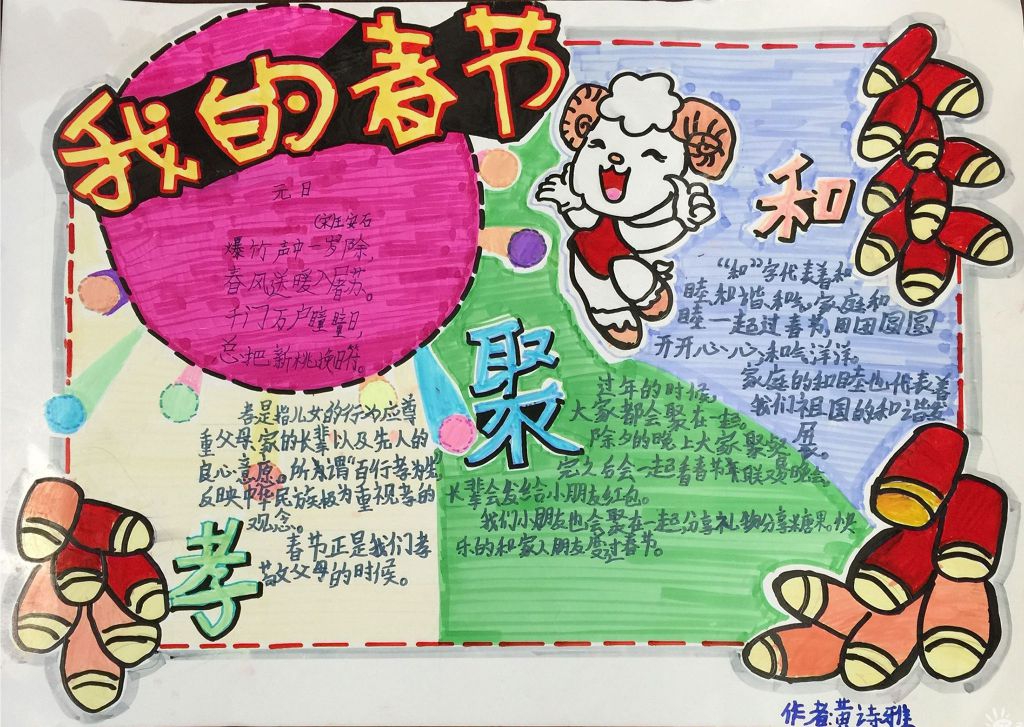 我的春节
元日
(宋)王安石
爆竹声中一岁除,
春风送暖入屠苏。
千门万户曈曈日,
总把新桃换旧符。
和
“和”字代表善和
睦和谐、和气。家庭和
睦一起过春节团团圆圆
开开心心,和气洋洋。
家庭的和睦也代表善
我们祖国的和谐发
展。
聚
过年的时候,
大家都会聚在一起。
除夕的晚上大家聚
完之后会一起看看春节联欢晚会,
长辈会发给小朋友红包。
我们小朋友也会聚在一起分享礼物分享糖果,快
乐的和家人朋友度过春节。
孝
是指儿女的行为应尊
重父母家的长辈以及先人的
良心意愿。所为谓“百行孝为先
反映中华民族极为重视孝的
观念。
春节正是我们孝
敬父母的时候。
作者黄诗雅